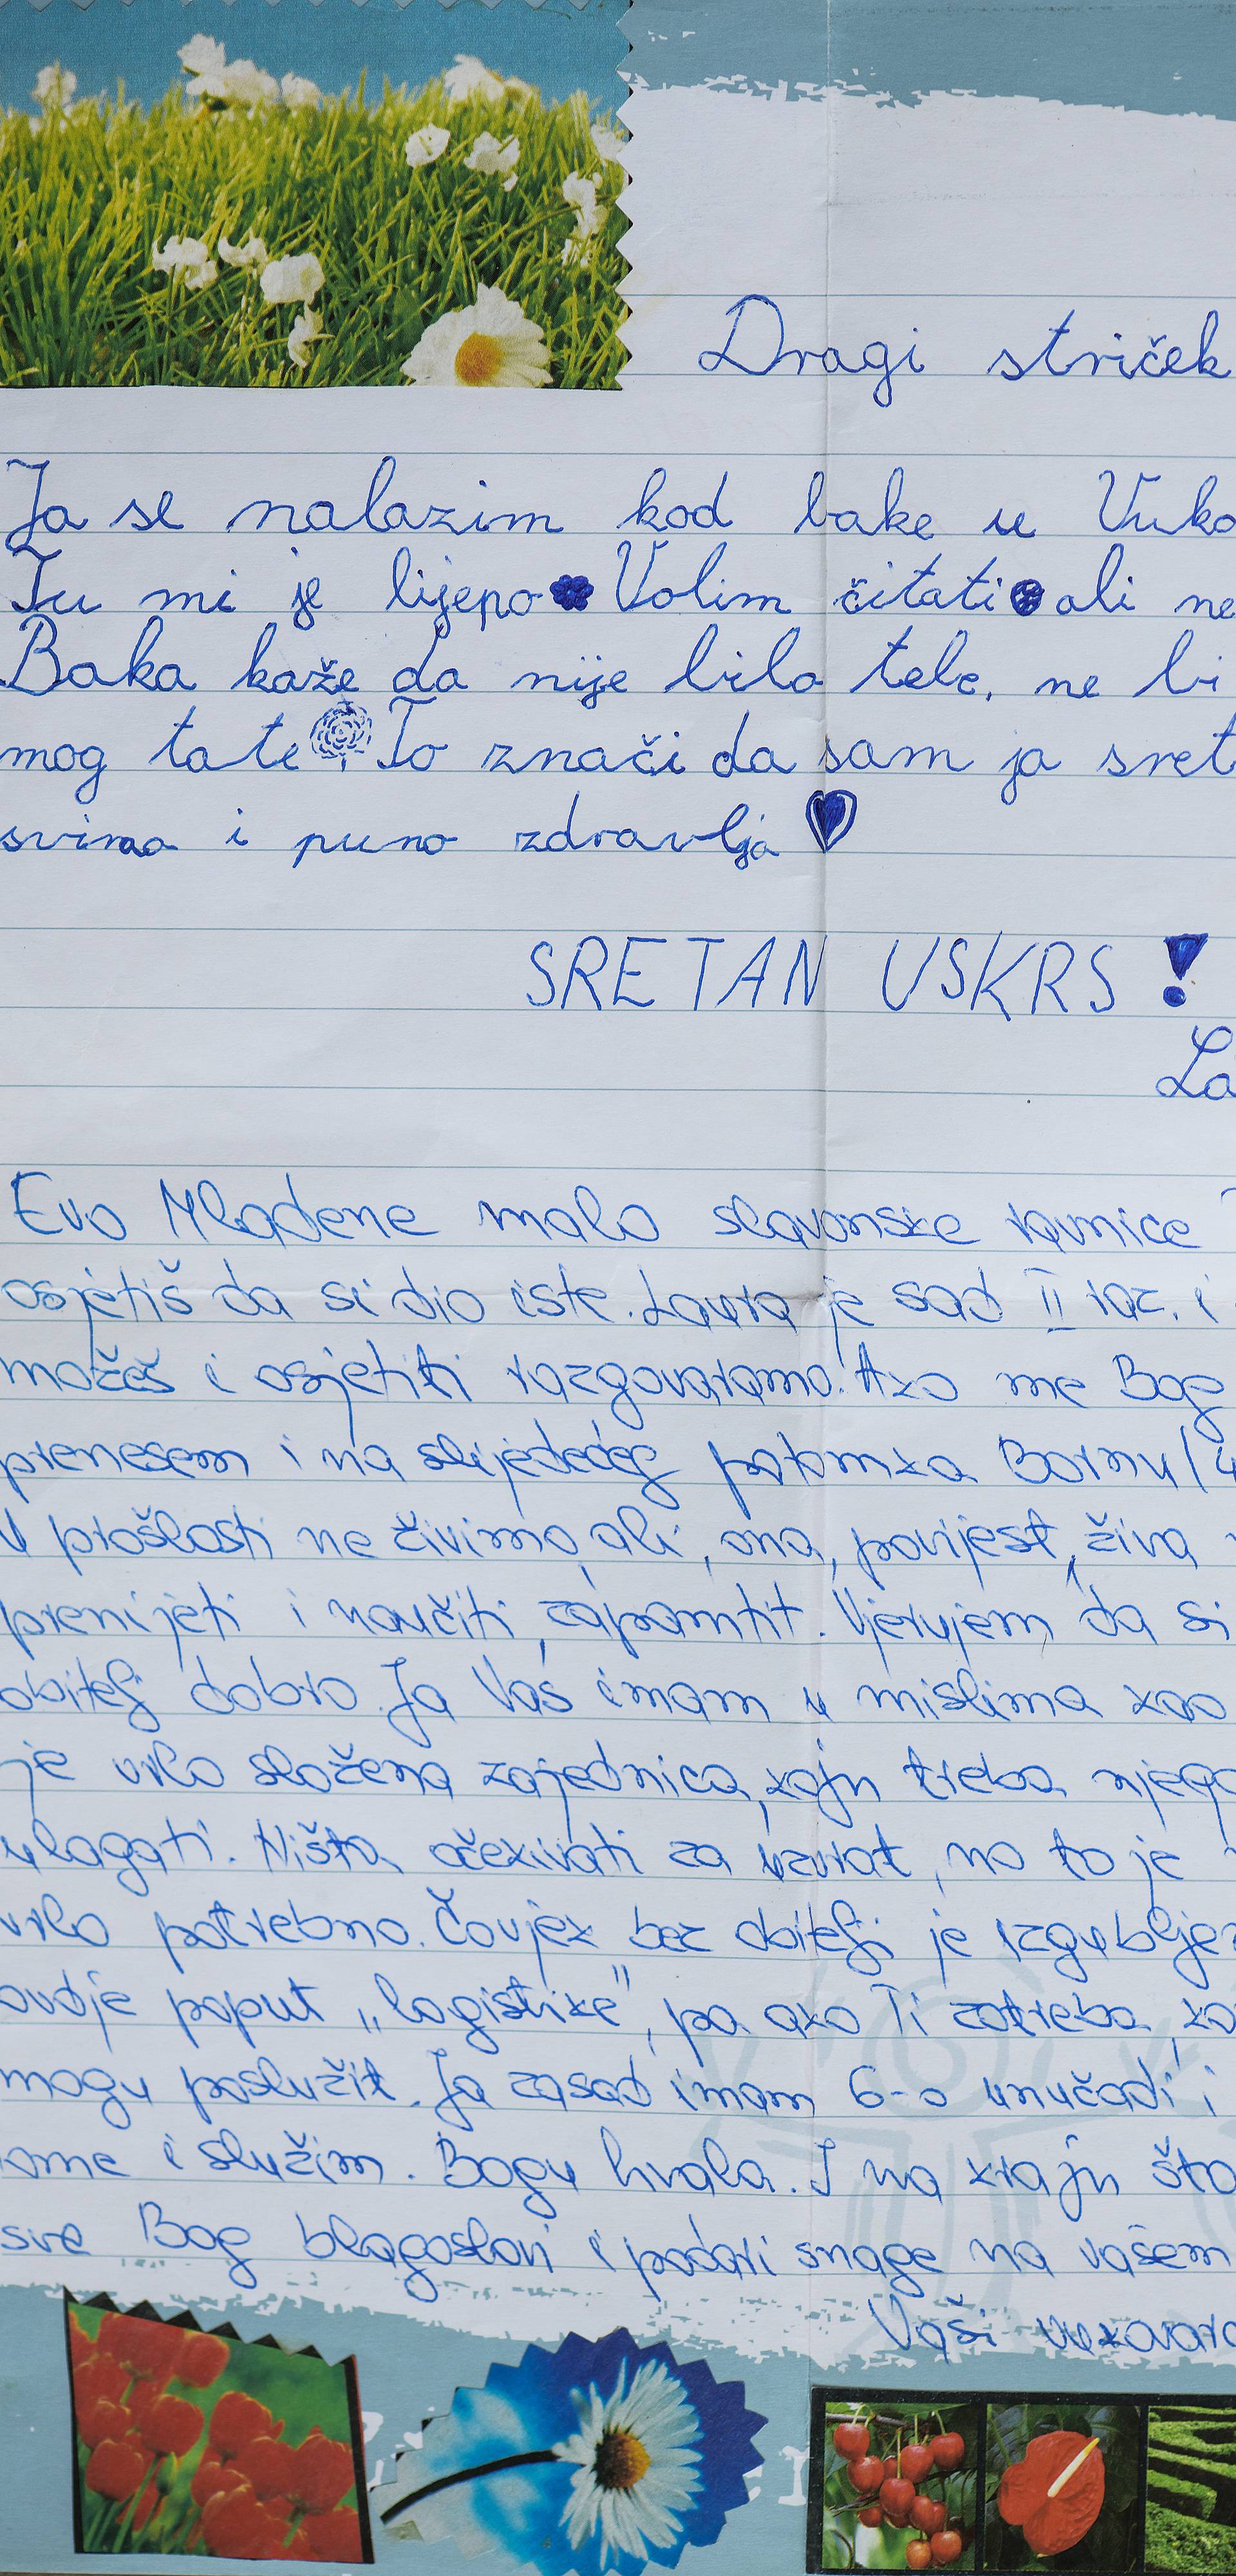 Dragi striček
Ja se nalazim kod bake u Vuko
Tu mi je lijepo Volim čitati ali ne
Baka kaže da nije bilo tebe, ne bi
mog tate. To znači da sam ja sret
svima i puno zdravlja
SRETAN USKRS!
La
Evo Mladene malo slavonske ravnice
osjetiš da si dio iste. Laura je sad II raz. i
možeš i osjetiti razgovaramo. Ako me Bog
prenesem i na slijedećeg potomka Bornu (4
U prošlosti ne živimo, ali, ona, povijest, živa
prenijeti i naučiti, zapamtit. Vjerujem da si
obitelj dobro. Ja Vas imam u mislima kao
je vrlo složena zajednica, koju treba njego
ulagati. Ništa očekivati za uzvrat, no to je
vrlo potrebno. Čovjek bez obitelji je izgubljen
ovdje poput „logistike", pa ako Ti zatreba, ko
mogu poslužit. Ja zasad imam 6-o unučadi i
ome i služim. Bogu hvala. I na kraju što
sve Bog blagoslovi i podari snage na vašem
Vaši vukovarc